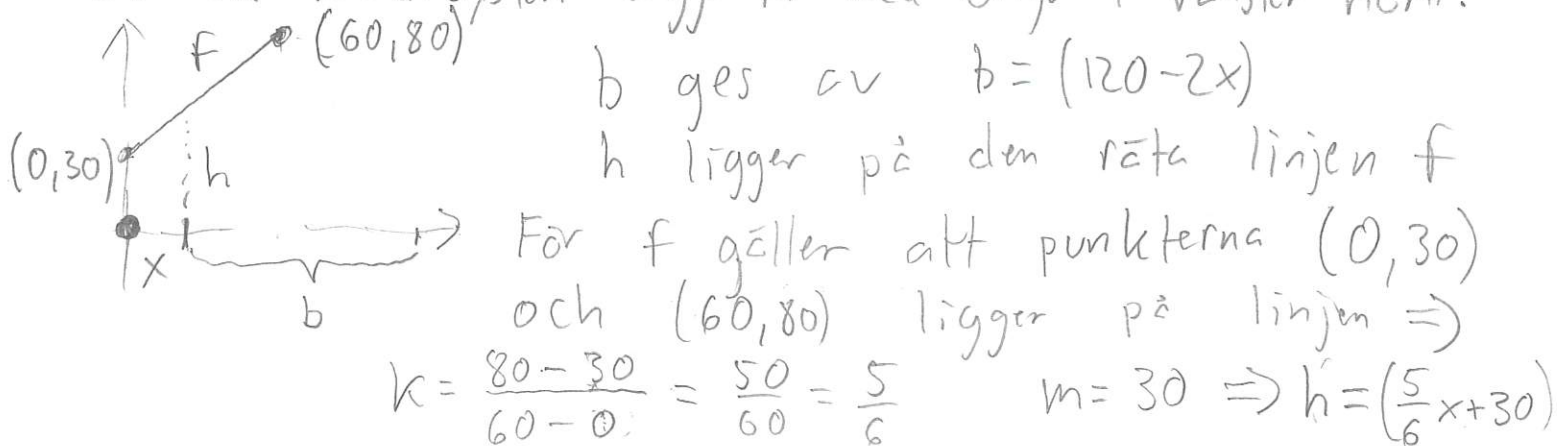 f (60,80)
b ges av b = (120-2x)
(0,30) h h ligger på den räta linjen f
För f gäller att punkterna (0,30)
x
b och (60,80) ligger på linjen =>
k = \frac{80-30}{60-0} = \frac{50}{60} = \frac{5}{6} m = 30 => h = (\frac{5}{6}x+30)